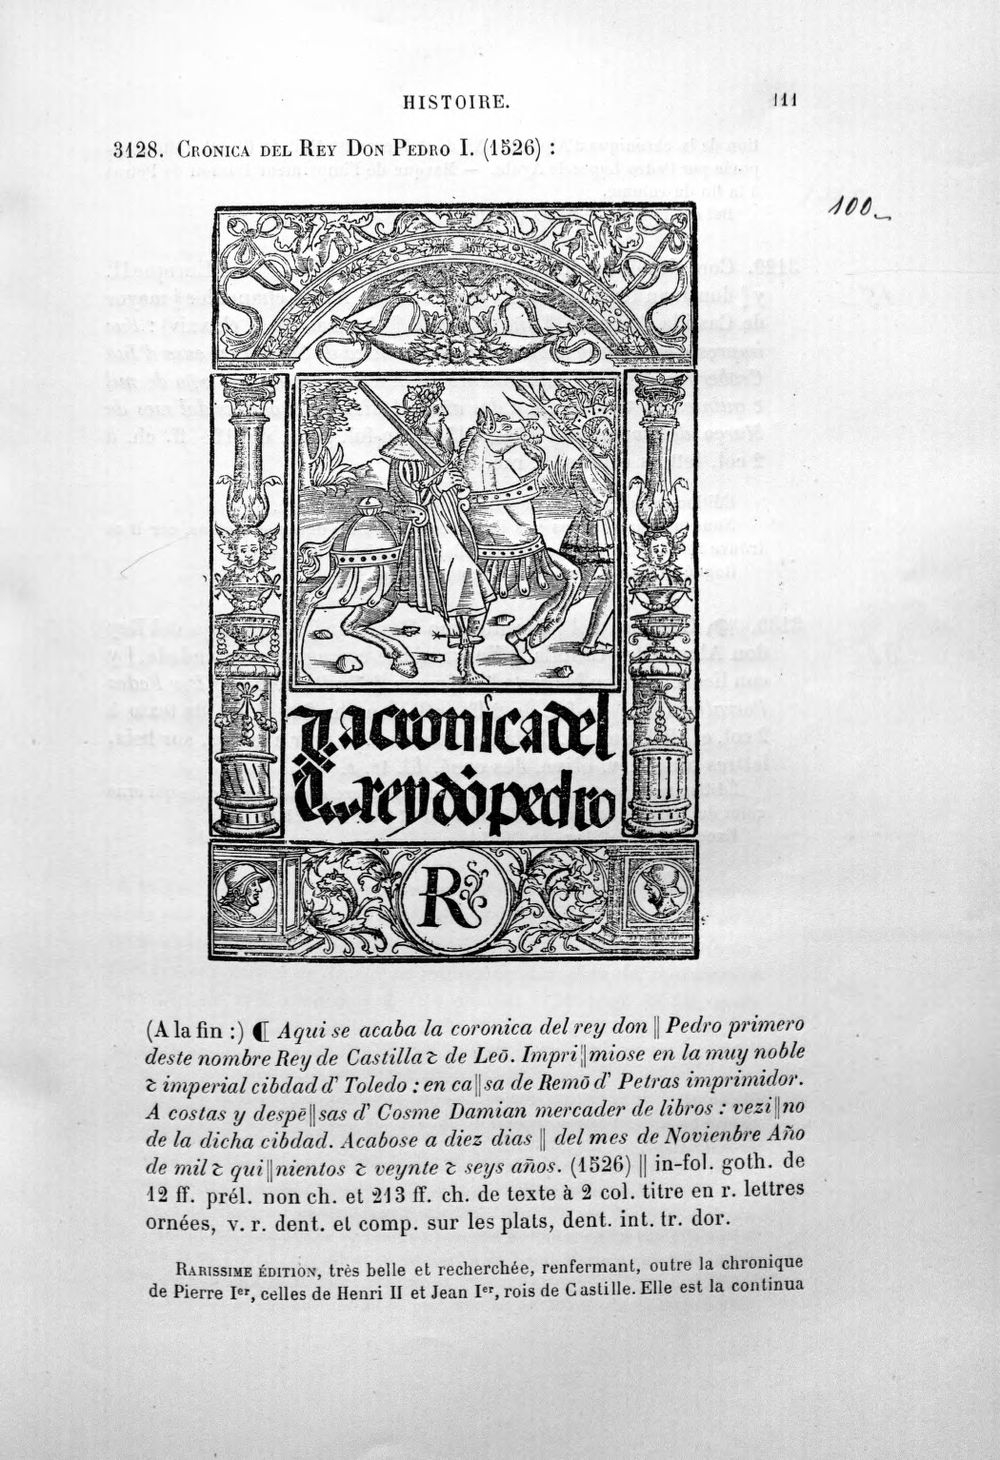 HISTOIRE. 111
3128. CRONICA DEL REY DON PEDRO I. (1526) :
100_
La cronica del
rey dõ pedro
R
(A la fin :) ⁋ Aqui se acaba la coronica del rey don || Pedro primero
deste nombre Rey de Castilla ⁊ de Leō. Impri||miose en la muy noble
⁊ imperial cibdad d' Toledo : en ca||sa de Remō d' Petras imprimidor.
A costas y despē||sas d' Cosme Damian mercader de libros : vezi||no
de la dicha cibdad. Acabose a diez dias || del mes de Novienbre Año
de mil ⁊ qui||nientos ⁊ veynte ⁊ seys años. (1526) || in-fol. goth. de
12 ff. prél. non ch. et 213 ff. ch. de texte à 2 col. titre en r. lettres
ornées, v. r. dent. et comp. sur les plats, dent. int. tr. dor.
RARISSIME ÉDITION, très belle et recherchée, renfermant, outre la chronique
de Pierre Ier, celles de Henri II et Jean Ier, rois de Castille. Elle est la continua